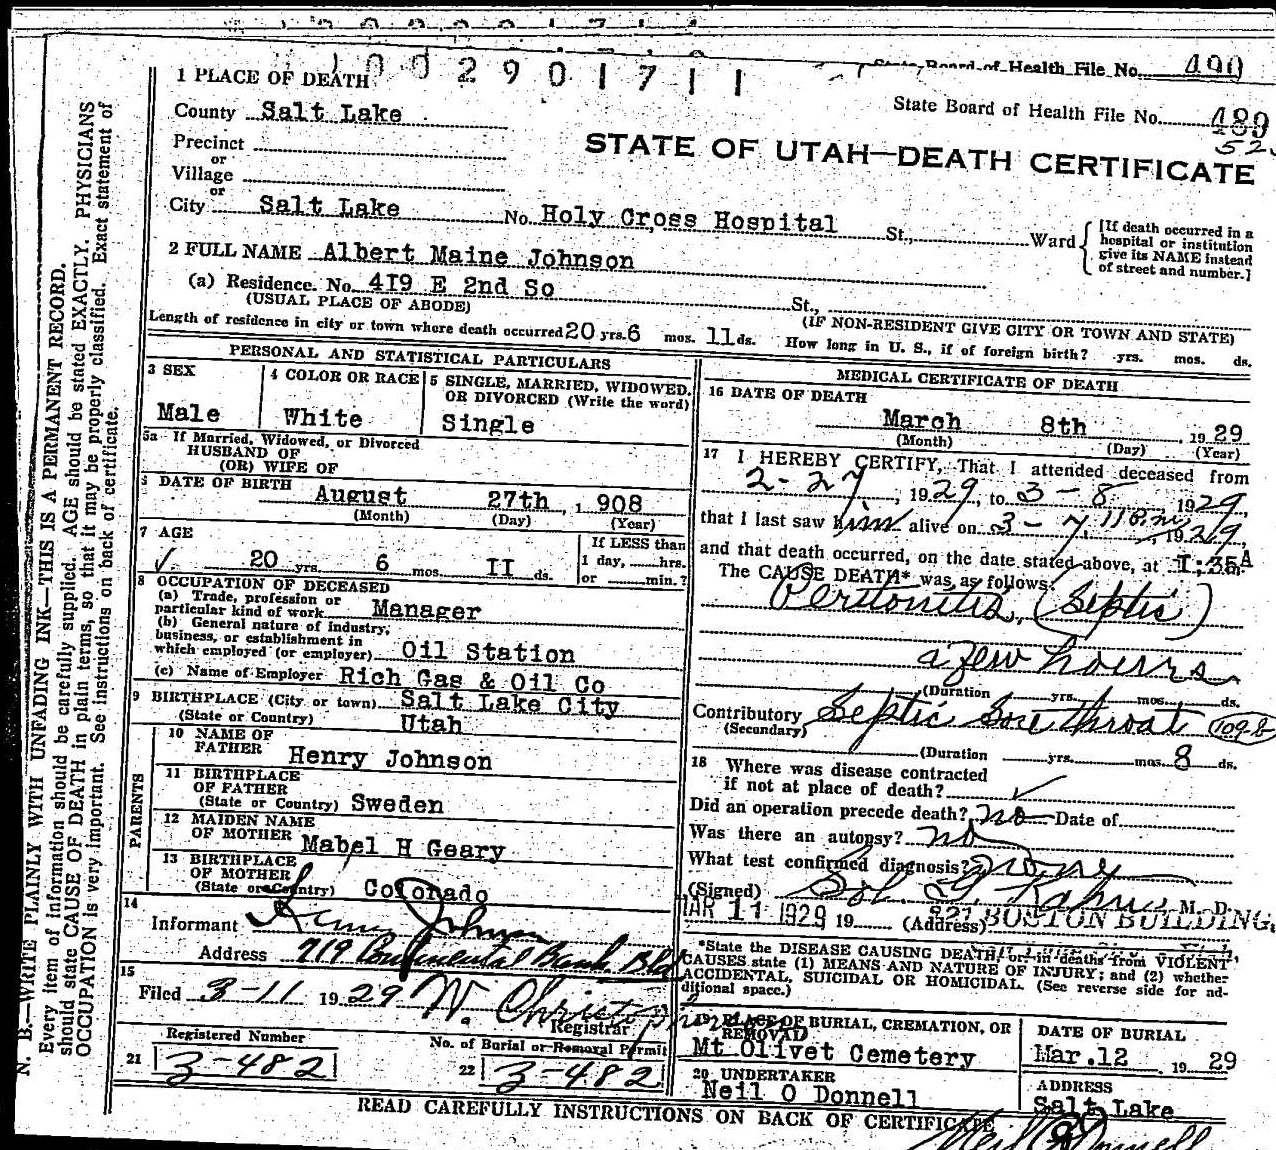 1002901711
State Board of Health File No. 490
1 PLACE OF DEATH
State Board of Health File No. 489
52
County Salt Lake
STATE OF UTAH—DEATH CERTIFICATE
Precinct
or
Village
or
City Salt Lake No. Holy Cross Hospital St., Ward
[If death occurred in a
hospital or institution
give its NAME instead
of street and number.]
2 FULL NAME Albert Maine Johnson
(a) Residence. No. 4I9 E 2nd So St.,
(USUAL PLACE OF ABODE) (IF NON-RESIDENT GIVE CITY OR TOWN AND STATE)
Length of residence in city or town where death occurred 20 yrs. 6 mos. 11 ds. How long in U. S., if of foreign birth? yrs. mos. ds.
PERSONAL AND STATISTICAL PARTICULARS
3 SEX
Male
4 COLOR OR RACE
White
5 SINGLE, MARRIED, WIDOWED,
OR DIVORCED (Write the word)
Single
5a If Married, Widowed, or Divorced
HUSBAND OF
(OR) WIFE OF
DATE OF BIRTH
August 27th, 1908
(Month) (Day) (Year)
7 AGE
20 yrs. 6 mos. II ds.
If LESS than
1 day, hrs.
or min.?
8 OCCUPATION OF DECEASED
(a) Trade, profession or
particular kind of work Manager
(b) General nature of industry,
business, or establishment in
which employed (or employer) Oil Station
(c) Name of Employer Rich Gas & Oil Co
9 BIRTHPLACE (City or town) Salt Lake City
(State or Country) Utah
PARENTS
10 NAME OF
FATHER Henry Johnson
11 BIRTHPLACE
OF FATHER
(State or Country) Sweden
12 MAIDEN NAME
OF MOTHER Mabel H Geary
13 BIRTHPLACE
OF MOTHER
(State or Country) Colorado
14
Informant Johnson
Address 719 Continental Bank Bld
15
Filed 3-11 1929 W. Christopherson
Registrar
Registered Number
21 3-482
No. of Burial or Removal Permit
22 3-482
MEDICAL CERTIFICATE OF DEATH
16 DATE OF DEATH
March 8th, 1929
(Month) (Day) (Year)
17 I HEREBY CERTIFY, That I attended deceased from
2-27, 1929, to 3-8 1929,
that I last saw him alive on 3-7, 11 P.m, 1929,
and that death occurred, on the date stated above, at I:35A m.
The CAUSE DEATH* was as follows:
Peritonitis, (Septic)
a few hours
(Duration yrs. mos. ds.
Contributory Septic Sore throat 109b
(Secondary)
(Duration yrs. mos. 8 ds.
18 Where was disease contracted
if not at place of death?
Did an operation precede death? no Date of
Was there an autopsy? no
What test confirmed diagnosis?
(Signed) Sol. G. Kahn M. D.
MAR 11 1929 19 (Address) 821 BOSTON BUILDING.
*State the DISEASE CAUSING DEATH, or in deaths from VIOLENT
CAUSES state (1) MEANS AND NATURE OF INJURY; and (2) whether
ACCIDENTAL, SUICIDAL OR HOMICIDAL. (See reverse side for ad-
ditional space.)
19 PLACE OF BURIAL, CREMATION, OR
REMOVAL
Mt Olivet Cemetery
DATE OF BURIAL
Mar. 12, 1929
20 UNDERTAKER
Neil O Donnell
ADDRESS
Salt Lake
READ CAREFULLY INSTRUCTIONS ON BACK OF CERTIFICATE
Neil O'Donnell
N. B.—WRITE PLAINLY WITH UNFADING INK—THIS IS A PERMANENT RECORD.
Every item of information should be carefully supplied. AGE should be stated EXACTLY. PHYSICIANS
should state CAUSE OF DEATH in plain terms, so that it may be properly classified. Exact statement of
OCCUPATION is very important. See instructions on back of certificate.